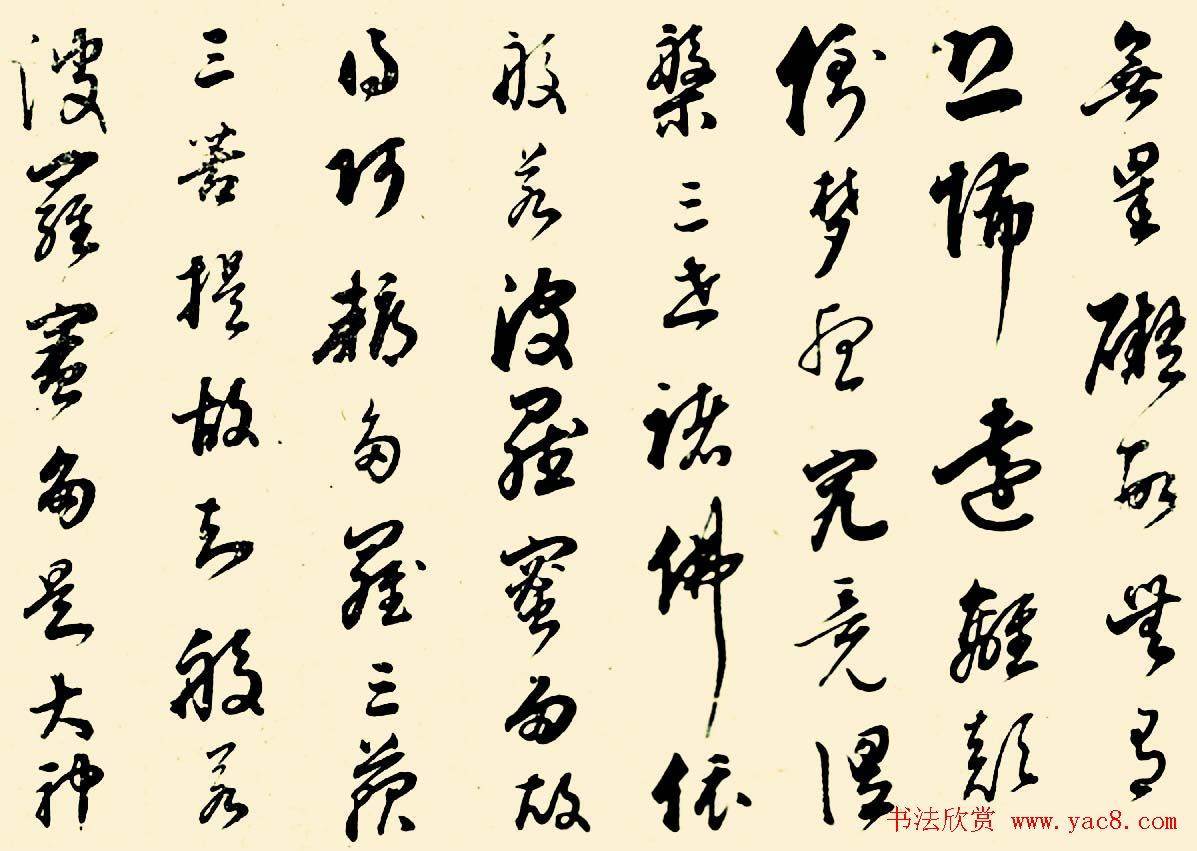 無罣礙故無有
恐怖遠離顛
倒梦想究竟涅
槃三世諸佛依
般若波羅蜜多故
得阿耨多羅三藐
三菩提故知般若
波羅蜜多是大神
书法欣赏 www.yac8.com